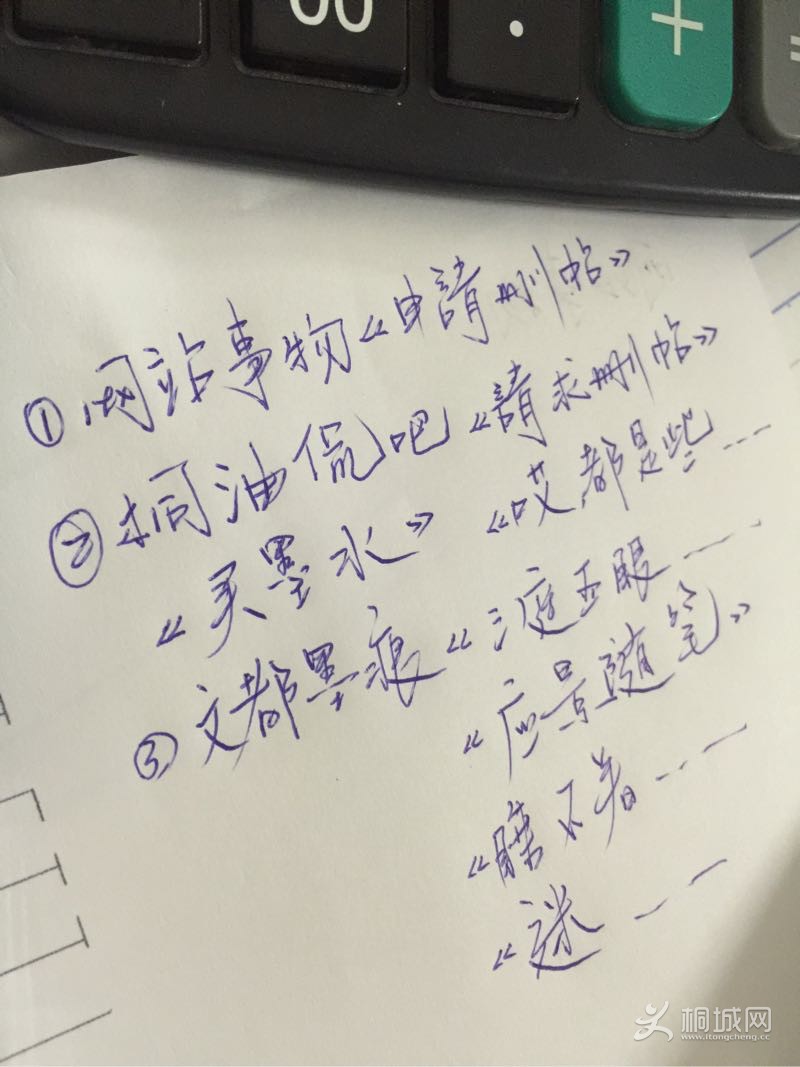 00
.
+
=
①网站事物《申請删帖》
②桐油侃吧《請求删帖》
《买墨水》《哎都是些...
③文都墨痕《三渡五眼...
《应景随笔》
《睡不着...
《谜...
桐城网
www.itongcheng.cc